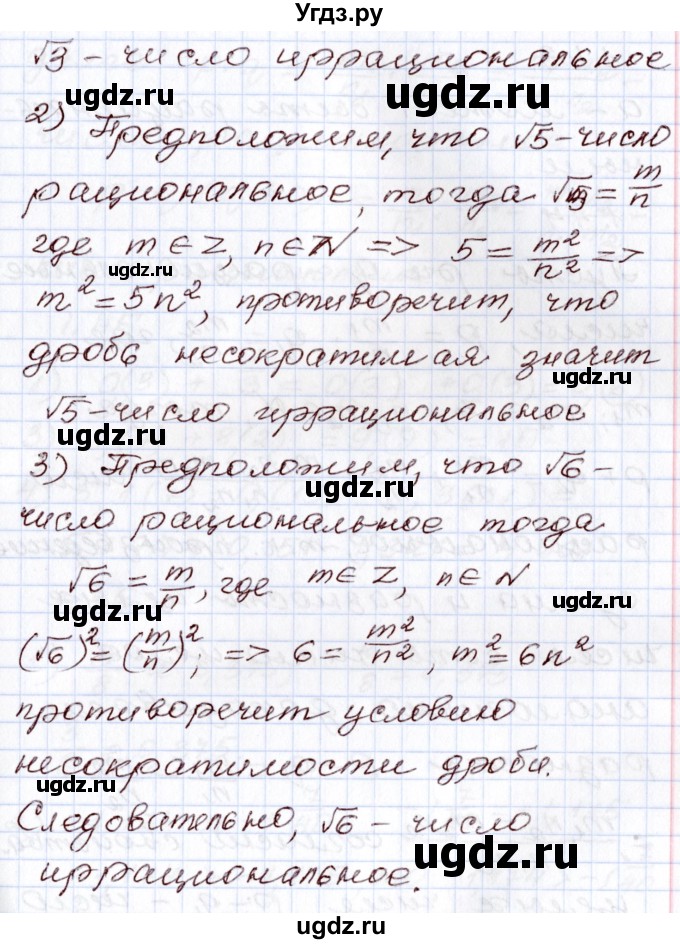 Угдз.ру
√3 - число иррациональное
ugdz.ru ugdz.ru
2) Предположим, что √5 - число
рациональное, тогда √5 = m/n
ugdz.ru ugdz.ru
где m ∈ Z, n ∈ N => 5 = m²/n² =>
m² = 5n², противоречит, что
ugdz.ru ugdz.ru
дробь несократимая значит
√5 - число иррациональное
ugdz.ru ugdz.ru
3) Предположим, что √6 -
ugdz.ru
число рациональное тогда
√6 = m/n, где m ∈ Z, n ∈ N
ugdz.ru ugdz.ru
(√6)² = (m/n)²; => 6 = m²/n², m² = 6n²
ugdz.ru ugdz.ru
противоречит условию
несократимости дроби.
ugdz.ru ugdz.ru
Следовательно, √6 - число
ugdz.ru
иррациональное.
ugdz.ru
ugdz.ru